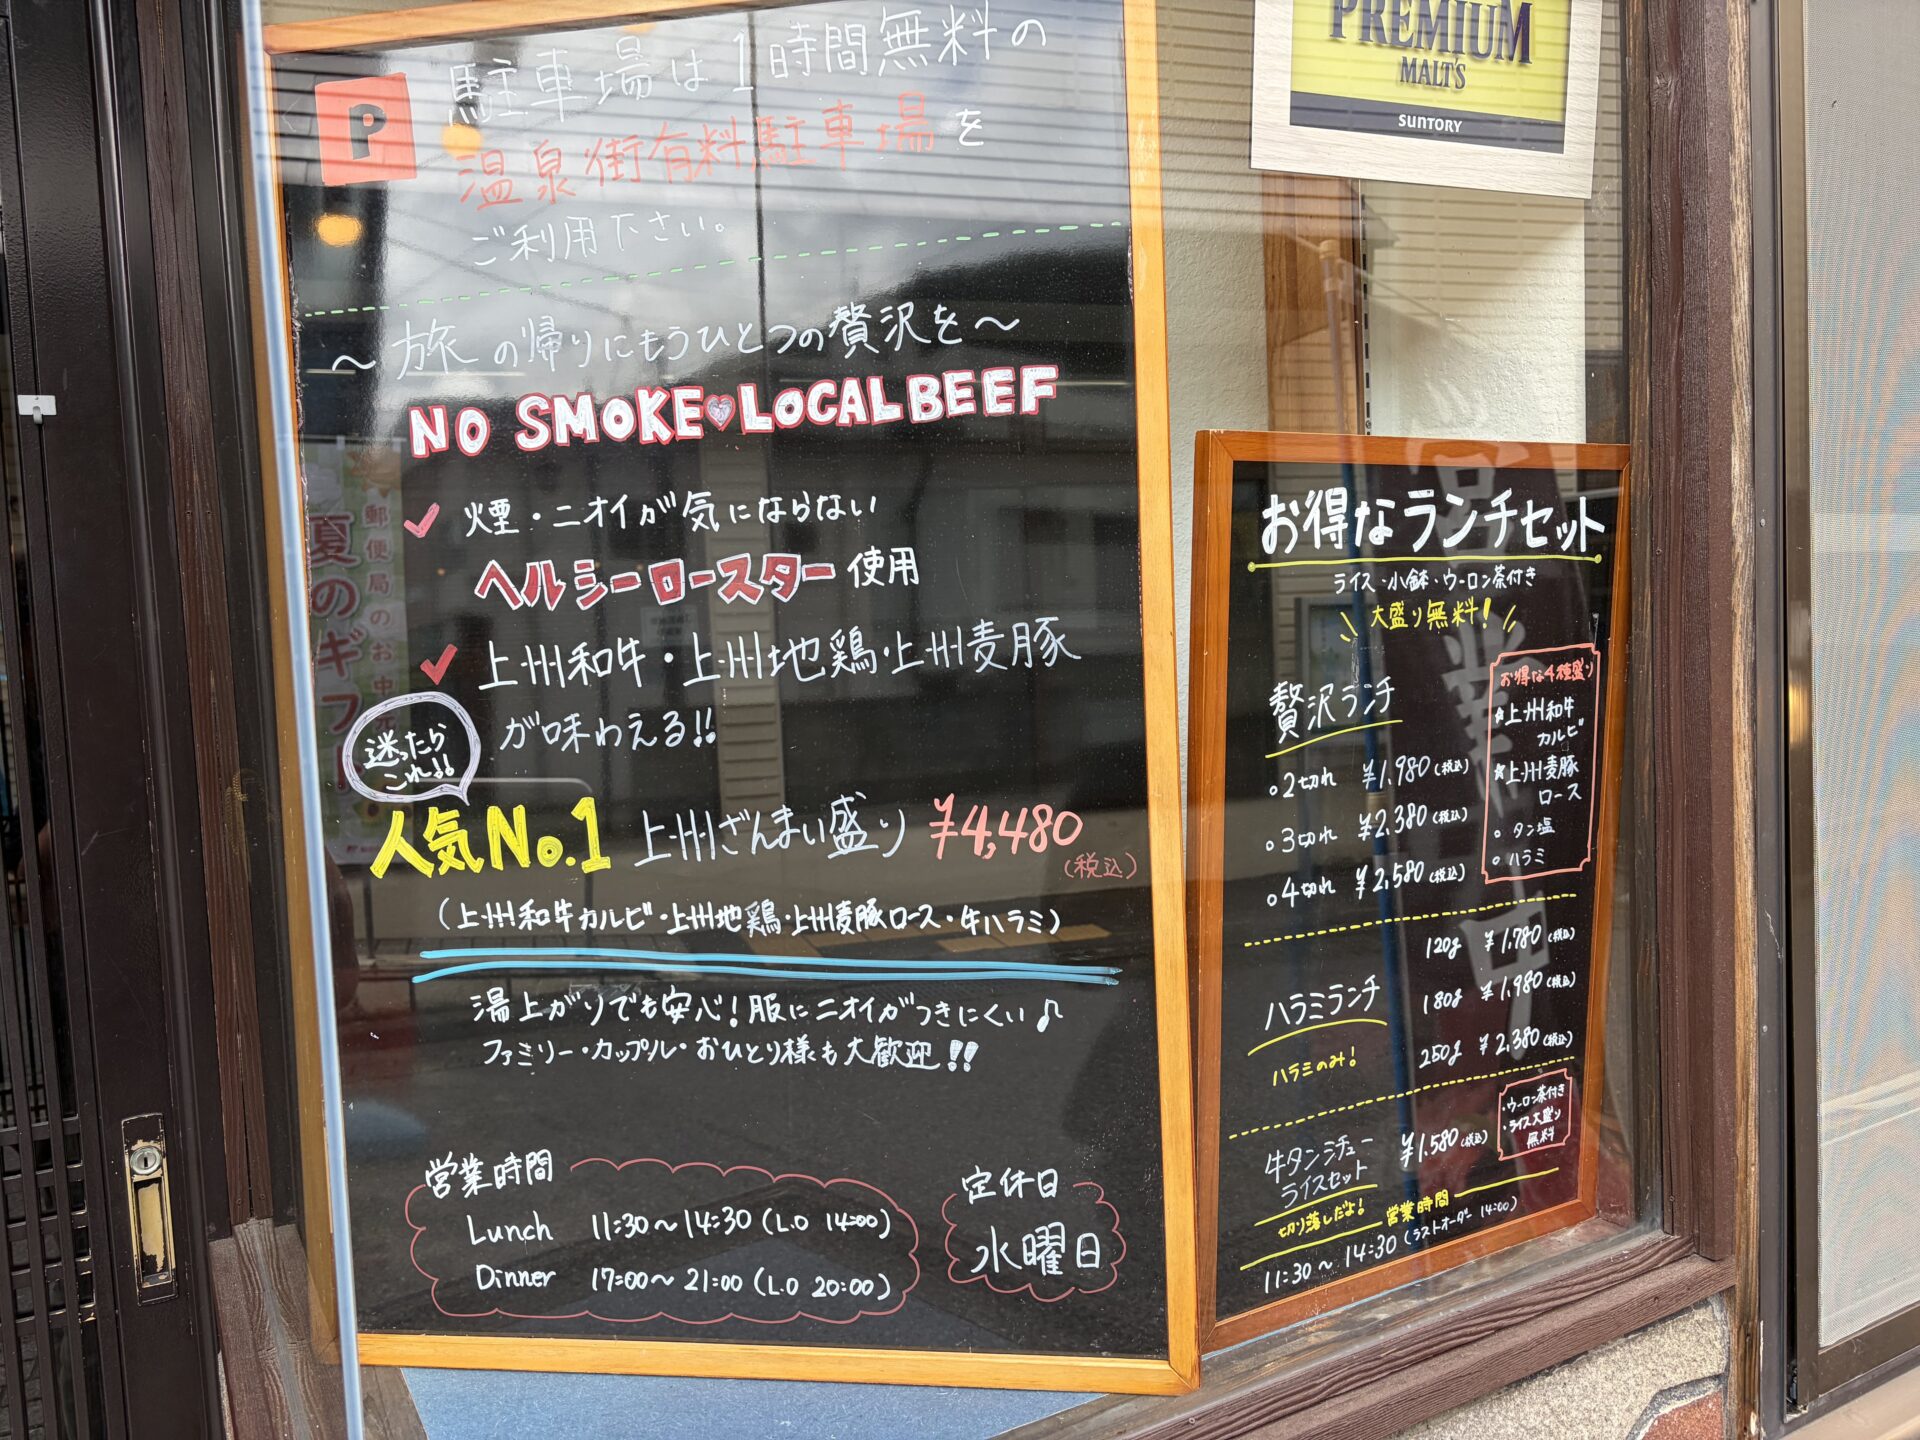 P
駐車場は1時間無料の
温泉街有料駐車場を
ご利用下さい。
～旅の帰りにもうひとつの贅沢を～
NO SMOKE♥LOCAL BEEF
✓ 煙・ニオイが気にならない
ヘルシーロースター使用
✓ 上州和牛・上州地鶏・上州麦豚
が味わえる!!
迷ったら
これ!!
人気No.1 上州ざんまい盛り ¥4,480
(税込)
(上州和牛カルビ・上州地鶏・上州麦豚ロース・牛ハラミ)
湯上がりでも安心!服にニオイがつきにくい♪
ファミリー・カップル・おひとり様も大歓迎!!
営業時間
Lunch 11:30～14:30 (L.O 14:00)
Dinner 17:00～21:00 (L.O 20:00)
定休日
水曜日
PREMIUM
MALT'S
SUNTORY
お得なランチセット
ライス・小鉢・ウーロン茶付き
大盛り無料!
贅沢ランチ
○2切れ ¥1,980(税込)
○3切れ ¥2,380(税込)
○4切れ ¥2,580(税込)
お得な4種盛り
★上州和牛
カルビ
★上州麦豚
ロース
○タン塩
○ハラミ
120g ¥1,780(税込)
ハラミランチ 180g ¥1,980(税込)
ハラミのみ! 250g ¥2,380(税込)
牛タンシチュー ¥1,580(税込)
ライスセット
切り落しだよ!
・ウーロン茶付き
・ライス大盛り
無料
営業時間
11:30～14:30(ラストオーダー 14:00)
郵便局のお中元
夏のギフト
営業中